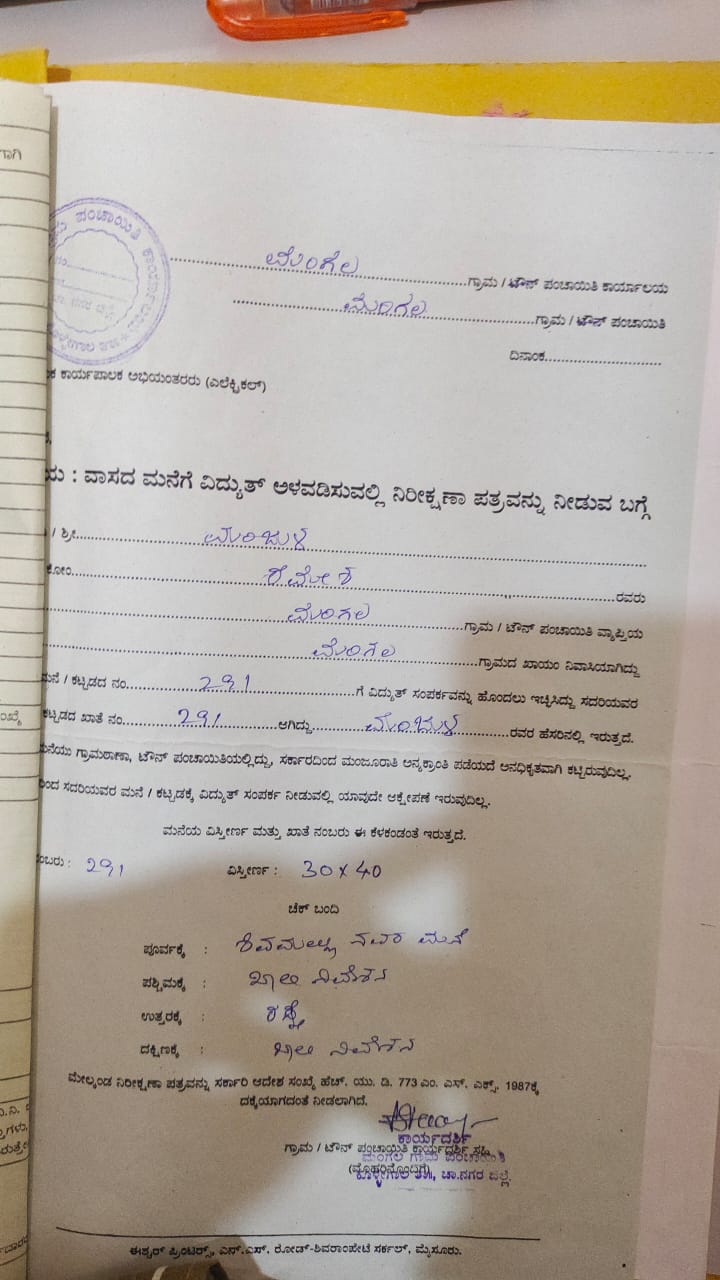 ಗಾಗಿ
ಪಂಚಾಯಿತಿ ಕಾರ್ಯಾಲಯ
ಮಂಗಲ ಗ್ರಾಮ / ಟೌನ್ ಪಂಚಾಯಿತಿ ಕಾರ್ಯಾಲಯ
ಮಂಗಲ ಗ್ರಾಮ / ಟೌನ್ ಪಂಚಾಯಿತಿ
ದಿನಾಂಕ
ಕ ಕಾರ್ಯಪಾಲಕ ಅಭಿಯಂತರರು (ಎಲೆಕ್ಟ್ರಿಕಲ್)
ಯ : ವಾಸದ ಮನೆಗೆ ವಿದ್ಯುತ್ ಅಳವಡಿಸುವಲ್ಲಿ ನಿರೀಕ್ಷಣಾ ಪತ್ರವನ್ನು ನೀಡುವ ಬಗ್ಗೆ
/ ಶ್ರೀ ಮಂಜುಳ
ಕೋಂ ರಮೇಶ ರವರು
ಮಂಗಲ ಗ್ರಾಮ / ಟೌನ್ ಪಂಚಾಯಿತಿ ವ್ಯಾಪ್ತಿಯ
ಮಂಗಲ ಗ್ರಾಮದ ಖಾಯಂ ನಿವಾಸಿಯಾಗಿದ್ದು
ಮನೆ / ಕಟ್ಟಡದ ನಂ 291 ಗೆ ವಿದ್ಯುತ್ ಸಂಪರ್ಕವನ್ನು ಹೊಂದಲು ಇಚ್ಛಿಸಿದ್ದು ಸದರಿಯವರ
ಕಟ್ಟಡದ ಖಾತೆ ನಂ 291 ಆಗಿದ್ದು ಮಂಜುಳ ರವರ ಹೆಸರಿನಲ್ಲಿ ಇರುತ್ತದೆ.
ಮನೆಯು ಗ್ರಾಮಠಾಣಾ, ಟೌನ್ ಪಂಚಾಯಿತಿಯಲ್ಲಿದ್ದು, ಸರ್ಕಾರದಿಂದ ಮಂಜೂರಾತಿ ಅನ್ಯಕ್ರಾಂತಿ ಪಡೆಯದೆ ಅನಧಿಕೃತವಾಗಿ ಕಟ್ಟಿರುವುದಿಲ್ಲ.
ಂದ ಸದರಿಯವರ ಮನೆ / ಕಟ್ಟಡಕ್ಕೆ ವಿದ್ಯುತ್ ಸಂಪರ್ಕ ನೀಡುವಲ್ಲಿ ಯಾವುದೇ ಆಕ್ಷೇಪಣೆ ಇರುವುದಿಲ್ಲ.
ಮನೆಯ ವಿಸ್ತೀರ್ಣ ಮತ್ತು ಖಾತೆ ನಂಬರು ಈ ಕೆಳಕಂಡಂತೆ ಇರುತ್ತದೆ.
ಂಬರು : 291 ವಿಸ್ತೀರ್ಣ : 30 x 40
ಚೆಕ್ ಬಂದಿ
ಪೂರ್ವಕ್ಕೆ : ಶಿವಮಲ್ಲು ಮನೆ
ಪಶ್ಚಿಮಕ್ಕೆ : ಖಾಲಿ ನಿವೇಶನ
ಉತ್ತರಕ್ಕೆ : ರಸ್ತೆ
ದಕ್ಷಿಣಕ್ಕೆ : ಖಾಲಿ ನಿವೇಶನ
ಮೇಲ್ಕಂಡ ನಿರೀಕ್ಷಣಾ ಪತ್ರವನ್ನು ಸರ್ಕಾರಿ ಆದೇಶ ಸಂಖ್ಯೆ ಹೆಚ್. ಯು. ಡಿ. 773 ಎಂ. ಎಸ್. ಎಕ್ಸ್. 1987ಕ್ಕೆ
ದಕ್ಕೆಯಾಗದಂತೆ ನೀಡಲಾಗಿದೆ.
ಕಾರ್ಯದರ್ಶಿ
ಗ್ರಾಮ / ಟೌನ್ ಪಂಚಾಯಿತಿ ಕಾರ್ಯದರ್ಶಿ ಸಹಿ
ಮಂಗಲ ಗ್ರಾಮ ಪಂಚಾಯಿತಿ
(ಮೊಹರಿನೊಂದಿಗೆ)
ಕೊಳ್ಳೇಗಾಲ ತಾ॥, ಚಾ.ನಗರ ಜಿಲ್ಲೆ.
ಈಶ್ವರ್ ಪ್ರಿಂಟರ್ಸ್, ಎನ್.ಎಸ್. ರೋಡ್-ಶಿವರಾಂಪೇಟೆ ಸರ್ಕಲ್, ಮೈಸೂರು.